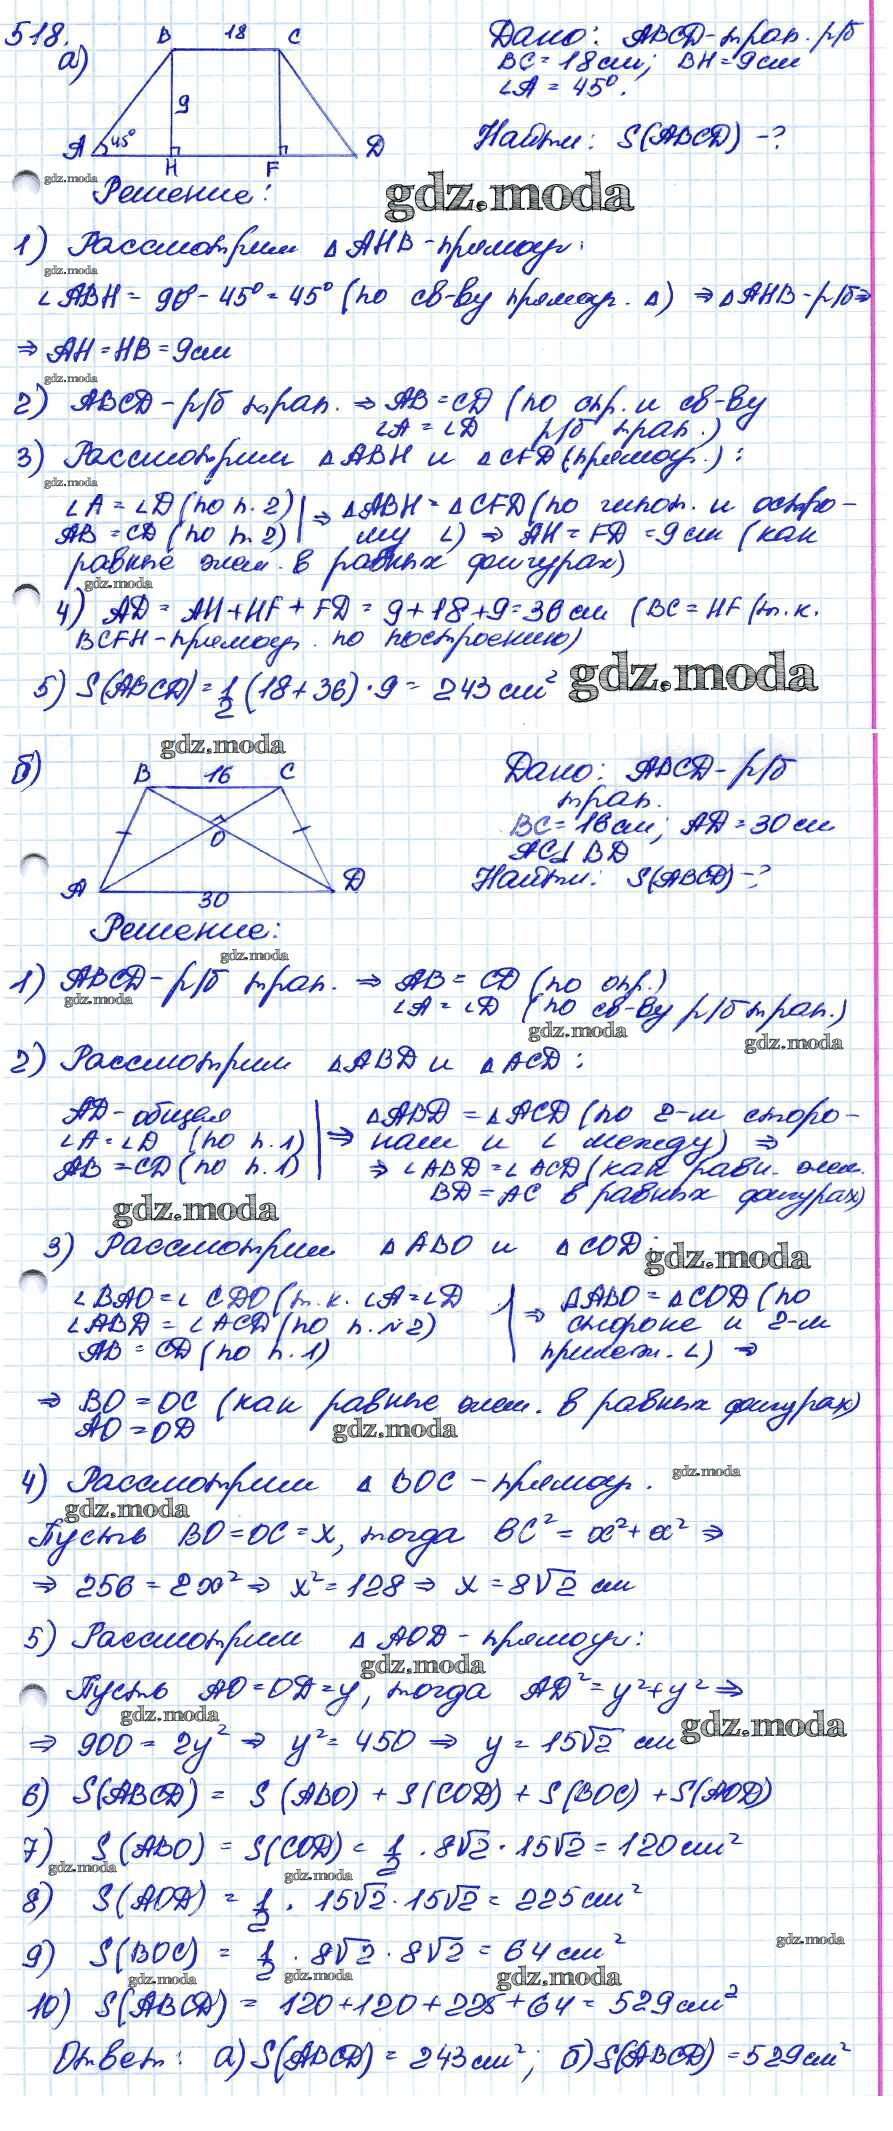 518.
а)
B 18 C
9
A 45° H F D
Дано: ABCD-трап. р/б
BC = 18 см; BH = 9 см
∠A = 45°.
Найти: S(ABCD) -?
gdz.moda
Решение:
gdz.moda
1) Рассмотрим △AHB-прямоуг:
gdz.moda
∠ABH = 90°- 45° = 45° (по св-ву прямоуг. △) ⇒ △AHB-р/б⇒
⇒ AH = HB = 9 см
gdz.moda
2) ABCD-р/б трап. ⇒ AB = CD (по опр. и св-ву
∠A = ∠D р/б трап.)
3) Рассмотрим △ABH и △CFD (прямоуг.):
gdz.moda
∠A = ∠D (по п. 2) | ⇒ △ABH = △CFD (по гипот. и остро-
AB = CD (по п. 2) | му ∠) ⇒ AH = FD = 9 см (как
равные элем. в равных фигурах)
gdz.moda
4) AD = AH + HF + FD = 9 + 18 + 9 = 36 см (BC = HF (т.к.
BCFH-прямоуг. по построению)
5) S(ABCD) = 1/2 (18 + 36) · 9 = 243 см²
gdz.moda
gdz.moda
б)
B 16 C
O
A 30 D
Дано: ABCD-р/б
трап.
BC = 16 см; AD = 30 см
AC⊥BD
Найти: S(ABCD) -?
Решение:
gdz.moda
1) ABCD-р/б трап. ⇒ AB = CD (по опр.)
gdz.moda
∠A = ∠D (по св-ву р/б трап.)
gdz.moda
gdz.moda
2) Рассмотрим △ABD и △ACD:
AD-общая | △ABD = △ACD (по 2-м сторо-
∠A = ∠D (по п. 1) | ⇒ нам и ∠ между) ⇒
AB = CD (по п. 1) | ⇒ ∠ABD = ∠ACD (как равн. элем.
BD = AC в равных фигурах)
gdz.moda
3) Рассмотрим △ABO и △COD:
gdz.moda
∠BAO = ∠CDO (т.к. ∠A = ∠D | ⇒ △ABO = △COD (по
∠ABD = ∠ACD (по п. №2) | стороне и 2-м
AB = CD (по п. 1) | прилеж. ∠) ⇒
⇒ BO = OC (как равные элем. в равных фигурах)
AO = OD
gdz.moda
4) Рассмотрим △BOC-прямоуг.
gdz.moda
gdz.moda
Пусть BO = OC = x, тогда BC² = x² + x² ⇒
⇒ 256 = 2x² ⇒ x² = 128 ⇒ x = 8√2 см
5) Рассмотрим △AOD-прямоуг:
gdz.moda
Пусть AO = OD = y, тогда AD² = y² + y² ⇒
gdz.moda
gdz.moda
⇒ 900 = 2y² ⇒ y² = 450 ⇒ y = 15√2 см
6) S(ABCD) = S(ABO) + S(COD) + S(BOC) + S(AOD)
7) S(ABO) = S(COD) = 1/2 · 8√2 · 15√2 = 120 см²
gdz.moda
gdz.moda
8) S(AOD) = 1/2 · 15√2 · 15√2 = 225 см²
gdz.moda
9) S(BOC) = 1/2 · 8√2 · 8√2 = 64 см²
gdz.moda
gdz.moda
gdz.moda
10) S(ABCD) = 120 + 120 + 225 + 64 = 529 см²
Ответ: а) S(ABCD) = 243 см²; б) S(ABCD) = 529 см²